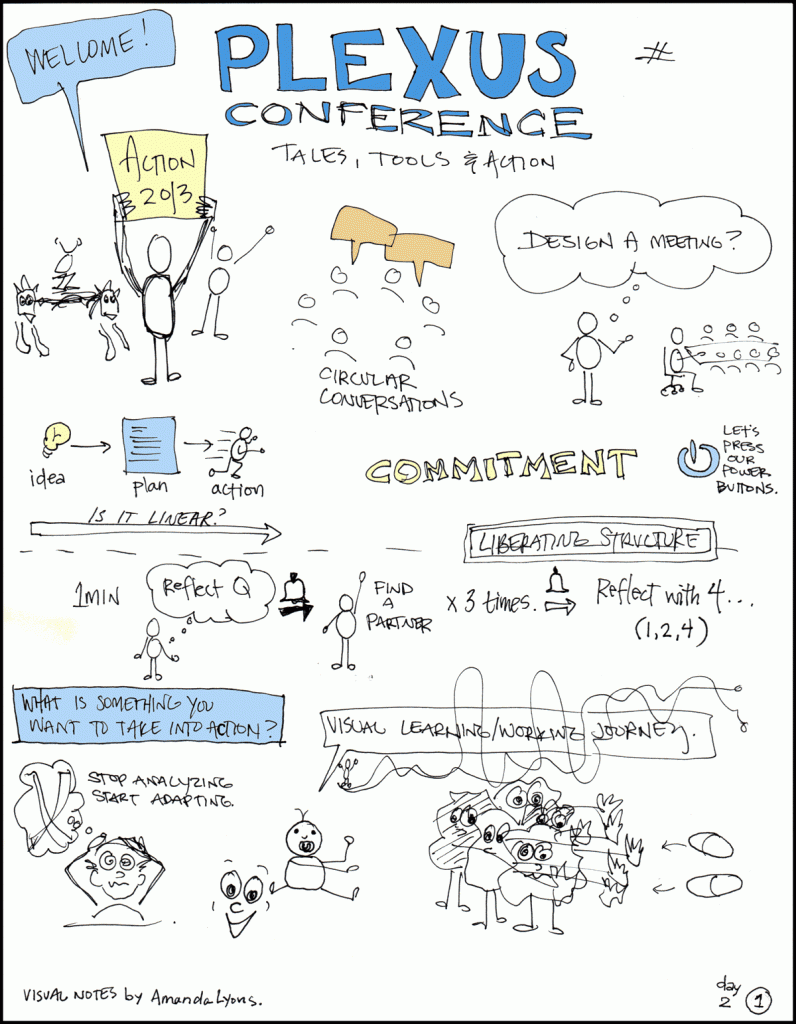 WELCOME!
PLEXUS
#
CONFERENCE
TALES, TOOLS & ACTION
ACTION
2013
DESIGN A MEETING?
CIRCULAR
CONVERSATIONS
idea
plan
action
IS IT LINEAR?
COMMITMENT
LET'S
PRESS
OUR
POWER
BUTTONS.
LIBERATING STRUCTURE
1MIN
Reflect Q
FIND
A
PARTNER
x 3 times.
Reflect with 4...
(1,2,4)
WHAT IS SOMETHING YOU
WANT TO TAKE INTO ACTION?
VISUAL LEARNING/WORKING JOURNEY.
STOP ANALYZING
START ADAPTING.
VISUAL NOTES by Amanda Lyons.
day
2
1